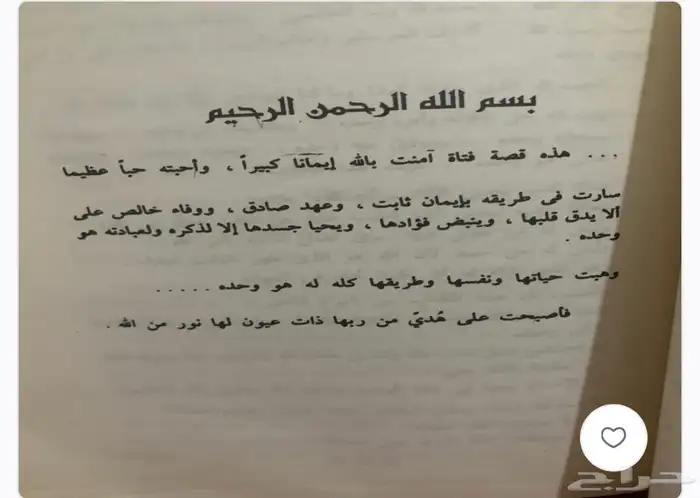 بسم الله الرحمن الرحيم
... هذه قصة فتاة آمنت بالله إيمانا كبيراً ، وأحبته حباً عظيما
سارت فى طريقه بإيمان ثابت ، وعهد صادق ، ووفاء خالص على
ألا يدق قلبها ، وينبض فؤادها ، ويحيا جسدها إلا لذكره ولعبادته هو
وحده .
وهبت حياتها ونفسها وطريقها كله له هو وحده .....
فأصبحت على هُديّ من ربها ذات عيون لها نور من الله .
حراج